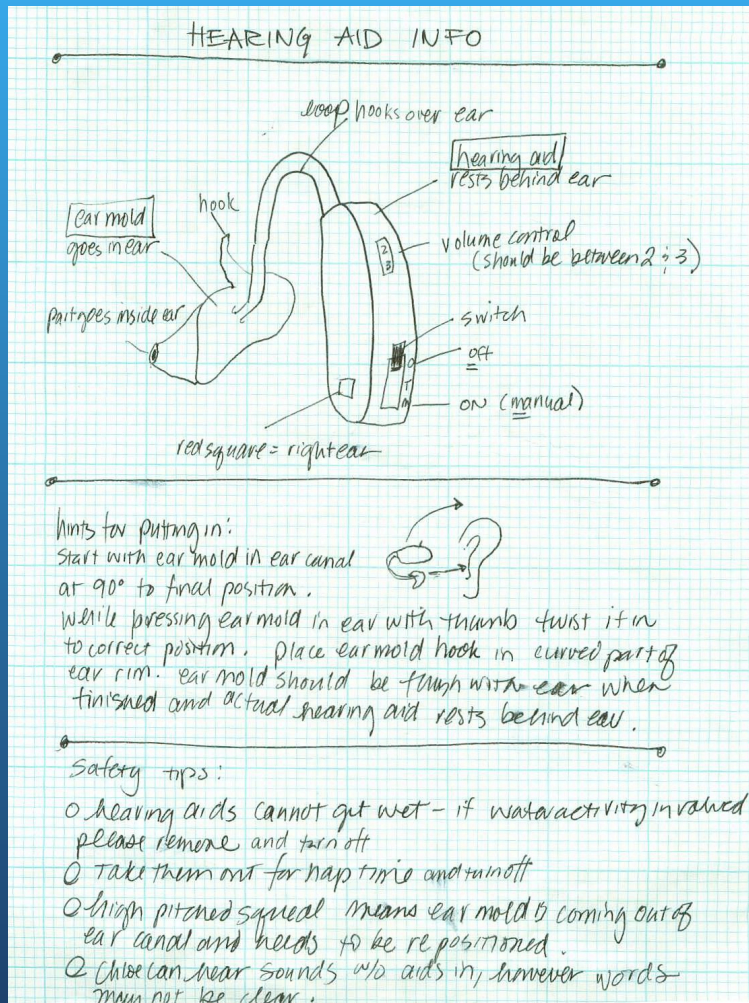 HEARING AID INFO
loop hooks over ear
hearing aid
rests behind ear
hook
ear mold
goes in ear
volume control
(should be between 2 & 3)
2
3
part goes inside ear
switch
off
O
T
M
ON (manual)
red square = right ear
hints for putting in:
Start with ear mold in ear canal
at 90° to final position.
While pressing ear mold in ear with thumb twist it in
to correct position. Place ear mold hook in curved part of
ear rim. ear mold should be flush with ear when
finished and actual hearing aid rests behind ear.
Safety tips:
O hearing aids cannot get wet - if water activity involved
please remove and turn off
O Take them out for nap time and turn off
O high pitched squeal means ear mold is coming out of
ear canal and needs to be repositioned.
O Chloe can hear sounds w/o aids in, however words
may not be clear.